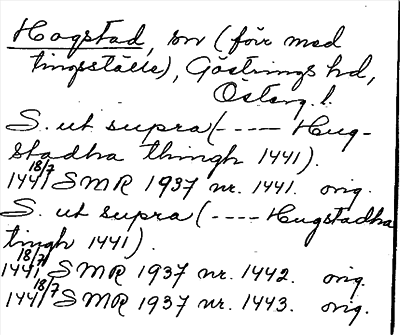 Hogstad, sn (förr med
tingsställe), Göstrings hd,
Österg. l.
S. ut supra (---- Hug-
stadha thingh 1441).
1441 18/7 SMR 1937 nr. 1441. orig.
S. ut supra (---- Hugstadha
tingh 1441).
1441 18/7 SMR 1937 nr. 1442. orig.
1441 18/7 SMR 1937 nr. 1443. orig.